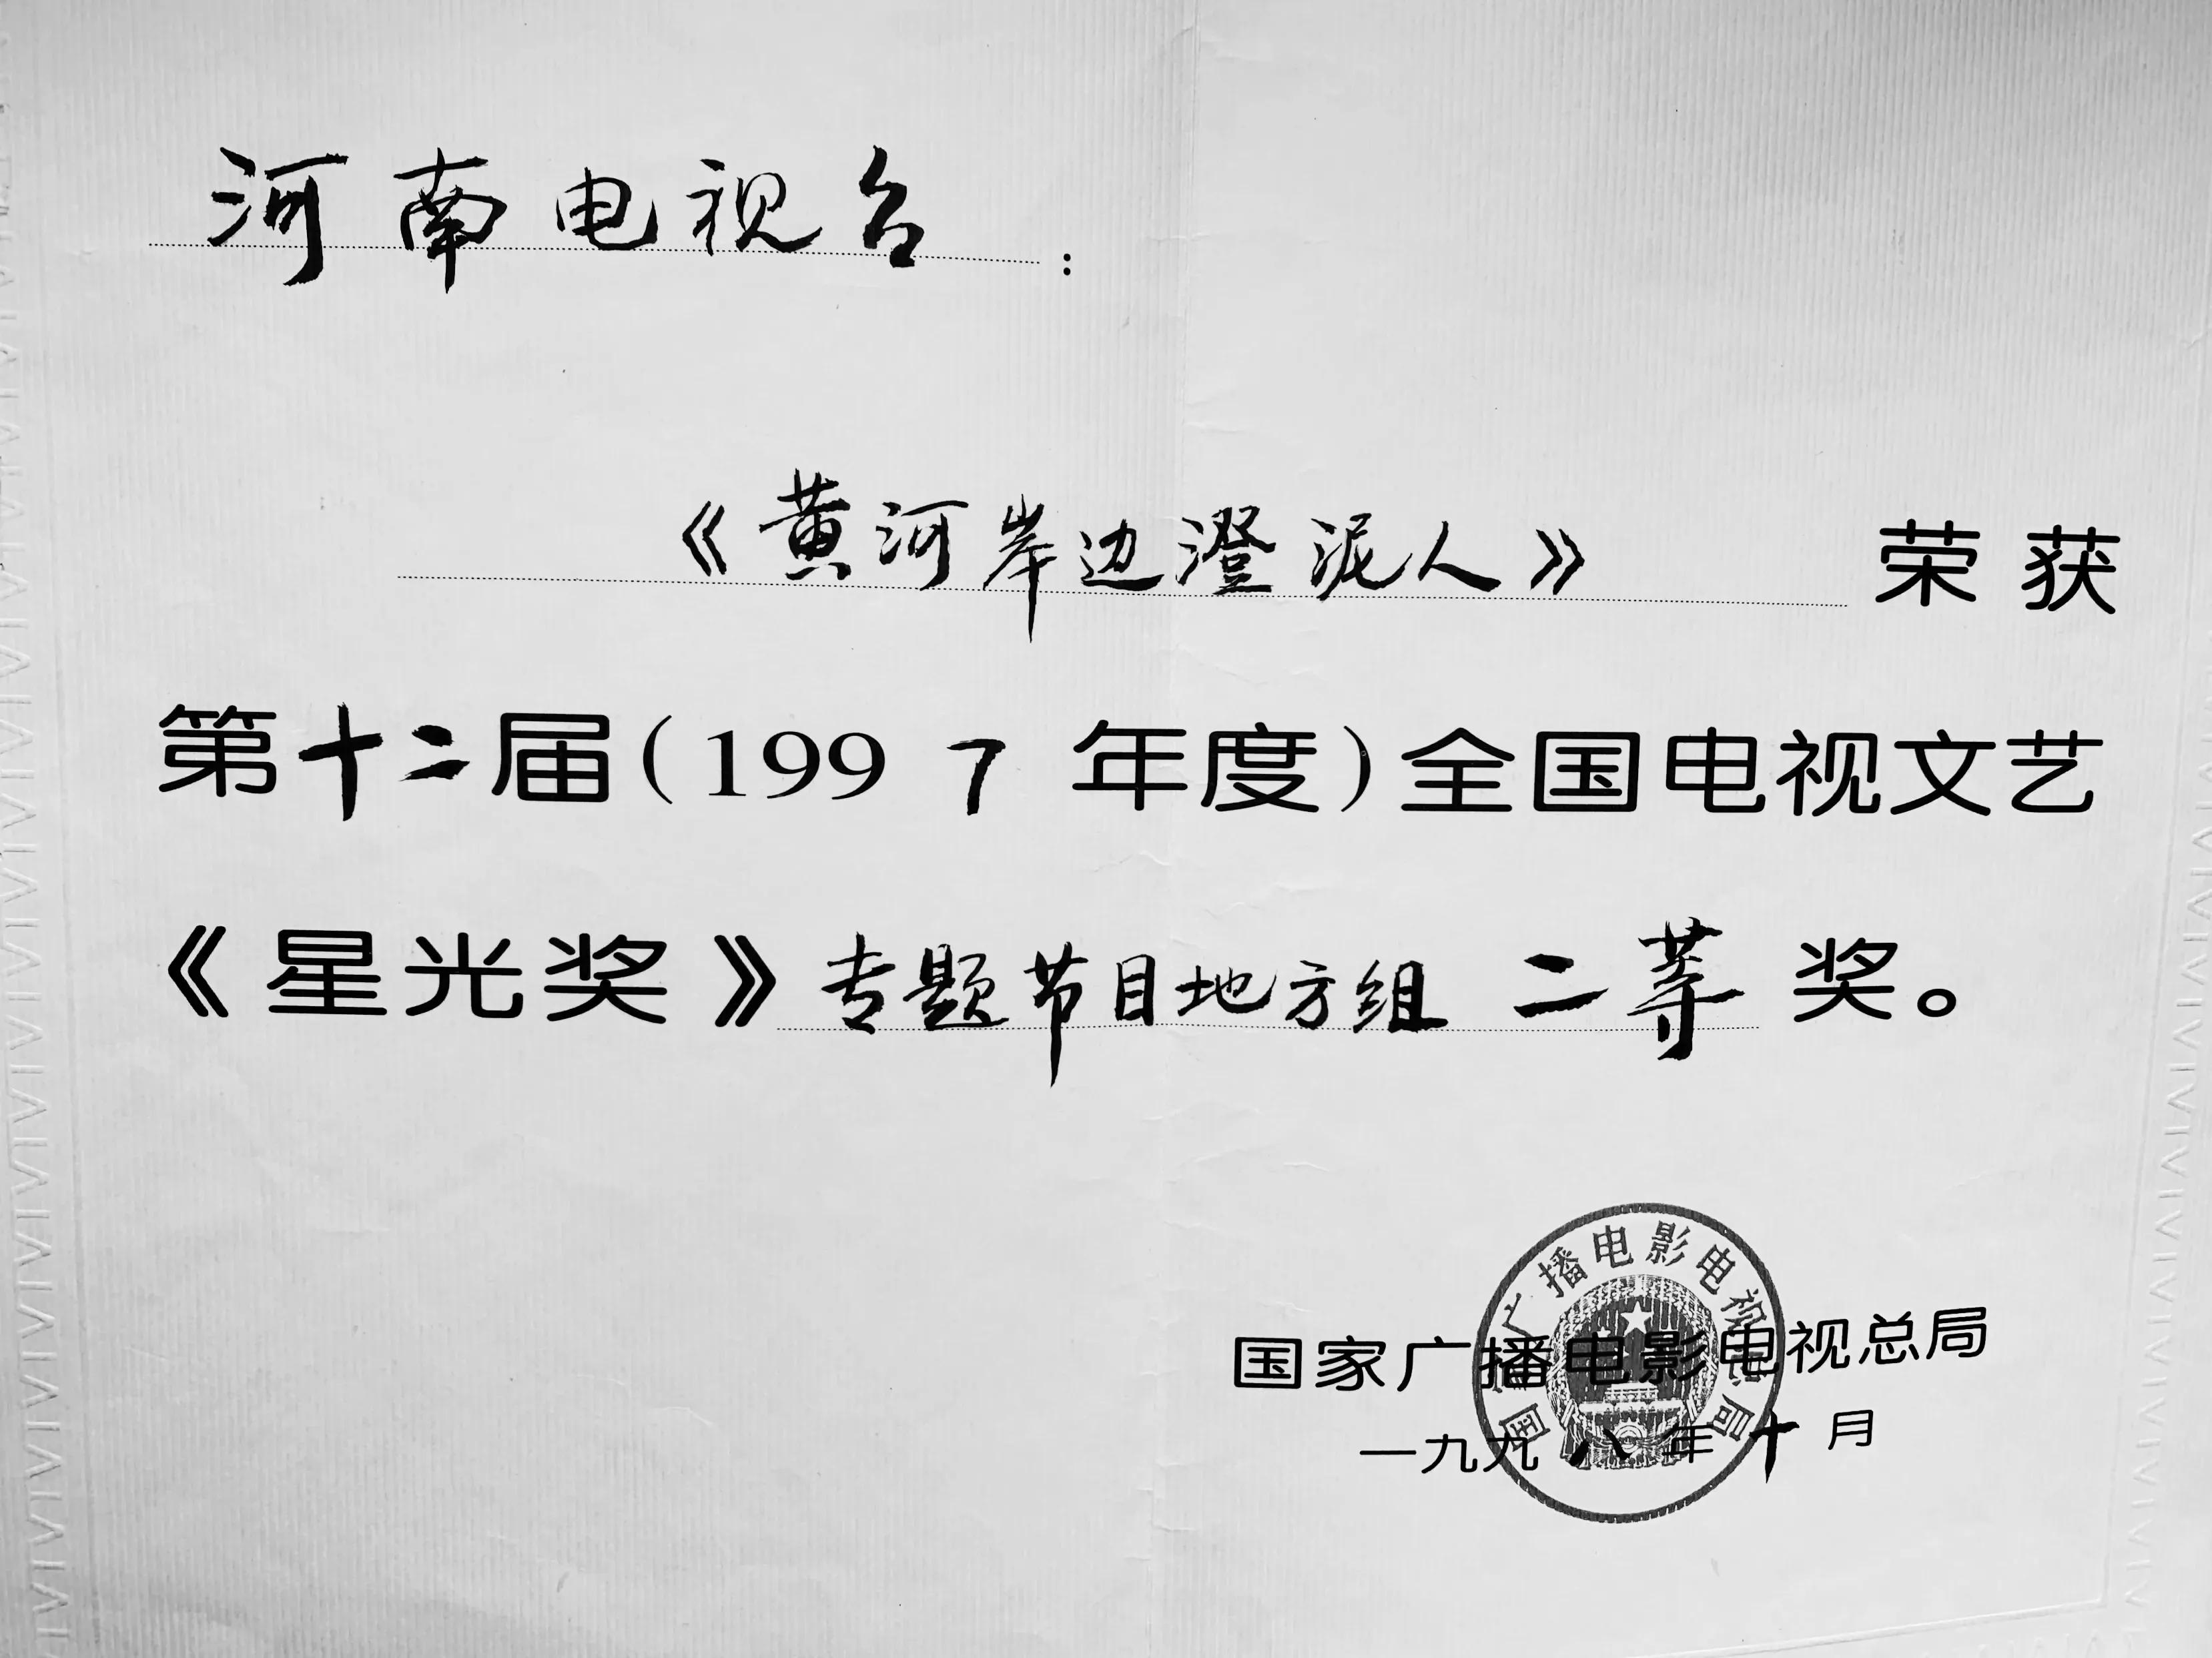 河南电视台：
《黄河岸边澄泥人》荣获
第十二届（1997年度）全国电视文艺
《星光奖》专题节目地方组 二等奖。
国家广播电影电视总局
国家广播电影电视总局
一九九八年十月